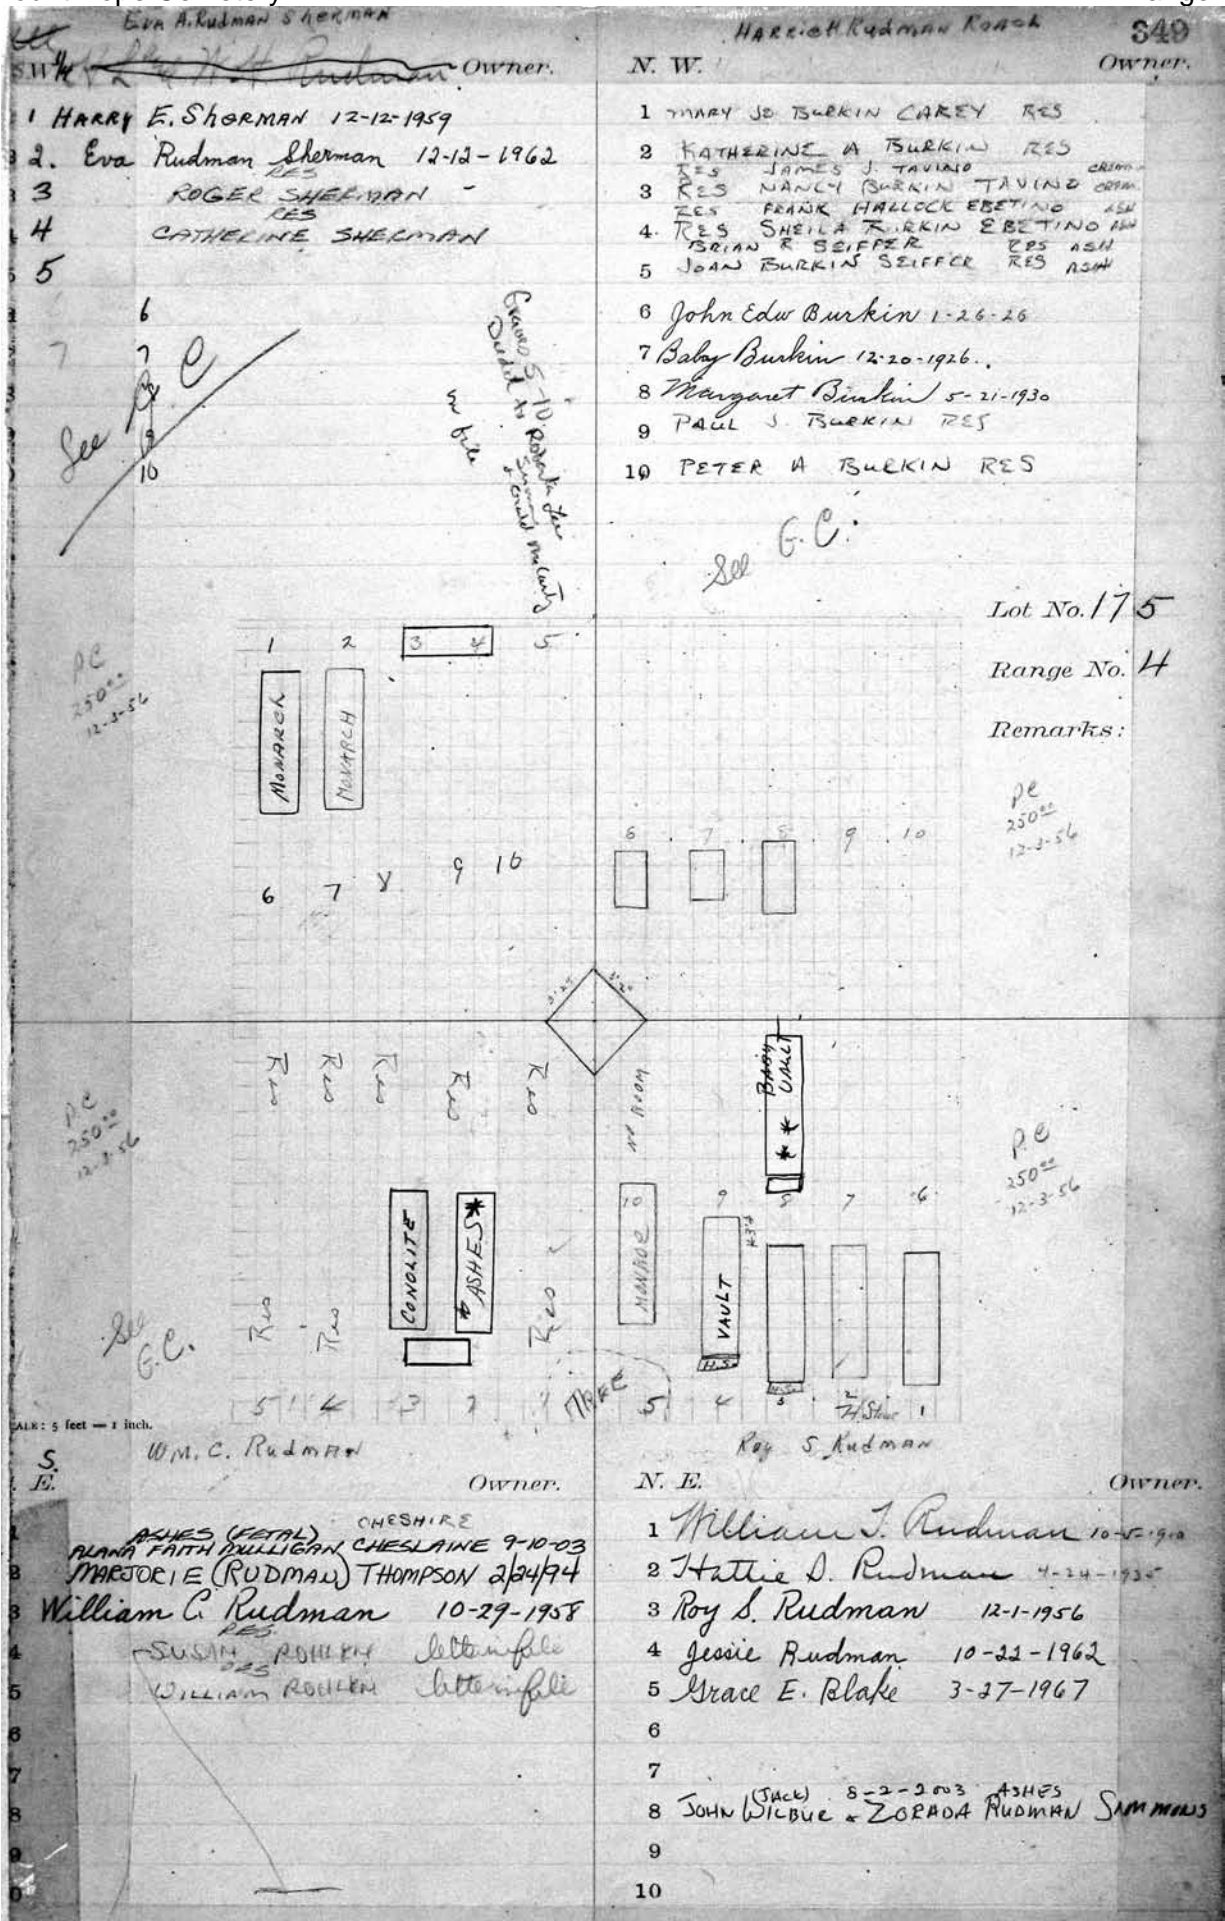 EVA A. RUDMAN SHERMAN
HARRIET RUDMAN ROACH
349
S.W. 1/4
Rudman
Owner.
N. W.
Owner.
1 HARRY E. SHERMAN 12-12-1959
2. Eva Rudman Sherman 12-12-1962
RES
3 ROGER SHERMAN -
RES
4 CATHERINE SHERMAN
5
6
7
10
See
Graves 5-10
Deeded to Roberta Lee
in file
1 MARY JO BURKIN CAREY RES
2 KATHERINE A BURKIN RES
RES JAMES J. TAVINO CREM
3 RES NANCY BURKIN TAVINO CREM.
RES FRANK HALLOCK EBETINO ASH
4. RES SHEILA BURKIN EBETINO ASH
BRIAN R SEIFFER RES ASH
5 JOAN BURKIN SEIFFER RES ASH
6 John Edw Burkin 1-26-26
7 Baby Burkin 12-20-1926.
8 Margaret Burkin 5-21-1930
9 PAUL J. BURKIN RES
10 PETER A BURKIN RES
See G.C.
Lot No. 175
Range No. 4
Remarks:
PC
250.00
12-3-56
1 2 3 4 5
MONARCH
MONARCH
6 7 8 9 10
PC
250.00
12-3-56
6 7 8 9 10
Res Res Res Res Res
NO ROOM
BABY VAULT
**
P.C
250.00
12-3-56
P.C
250.00
12-3-56
CONOLITE
* ASHES *
10
MONROE
9
VAULT
H.S.
8 7 6
Res Res Res
See G.C.
TREE
5 4 3 2 1
5 4 3 2 1
H.Stone
SCALE: 5 feet — 1 inch.
WM. C. Rudman
Roy S Rudman
S. E.
Owner.
N. E.
Owner.
ASHES (FETAL) CHESHIRE
1 ALANA FAITH MULLIGAN CHESLAINE 9-10-03
2 MARJORIE (RUDMAN) THOMPSON 2/24/94
3 William C. Rudman 10-29-1958
RES
4 SUSAN ROHLKN letter in file
RES
5 WILLIAM ROHLKN letter in file
6
7
8
9
1 William T. Rudman 10-5-1910
2 Hattie D. Rudman 4-24-1935
3 Roy S. Rudman 12-1-1956
4 Jessie Rudman 10-22-1962
5 Grace E. Blake 3-27-1967
6
7
(JACK) 8-2-2003 ASHES
8 JOHN WILBUR & ZORADA RUDMAN SIMMONS
9
10